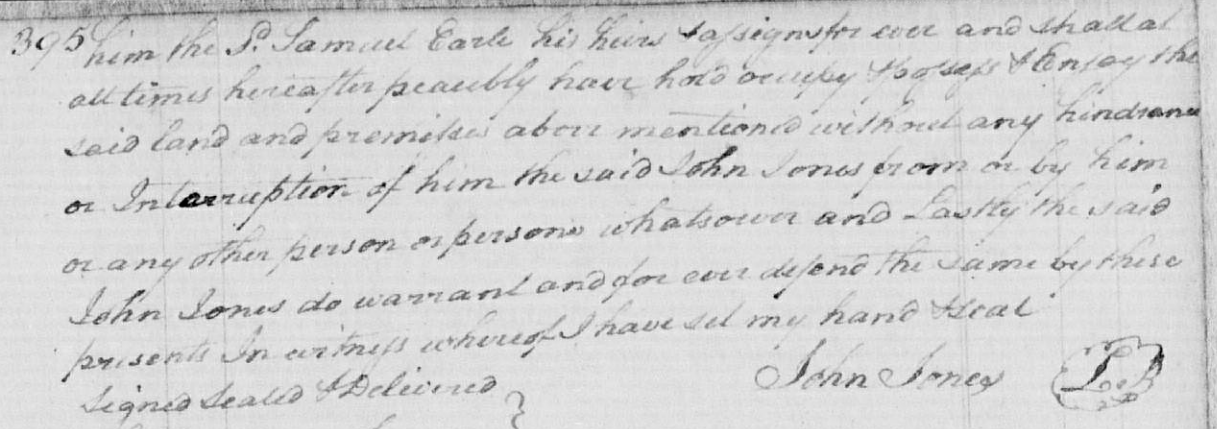 395 him the Sd. Samuel Earle his heirs & assigns for ever and shall at
all times hereafter peaceibly have hold occupy & possess & Enjoy the
said land and premises above mentioned without any hindrance
or Intarruption of him the said John Jones from or by him
or any other person or persons whatsoever and Lastly the said
John Jones do warrant and for ever defend the same by these
presents In witness whereof I have set my hand & seal
Signed Sealed & Delivered } John Jones LS